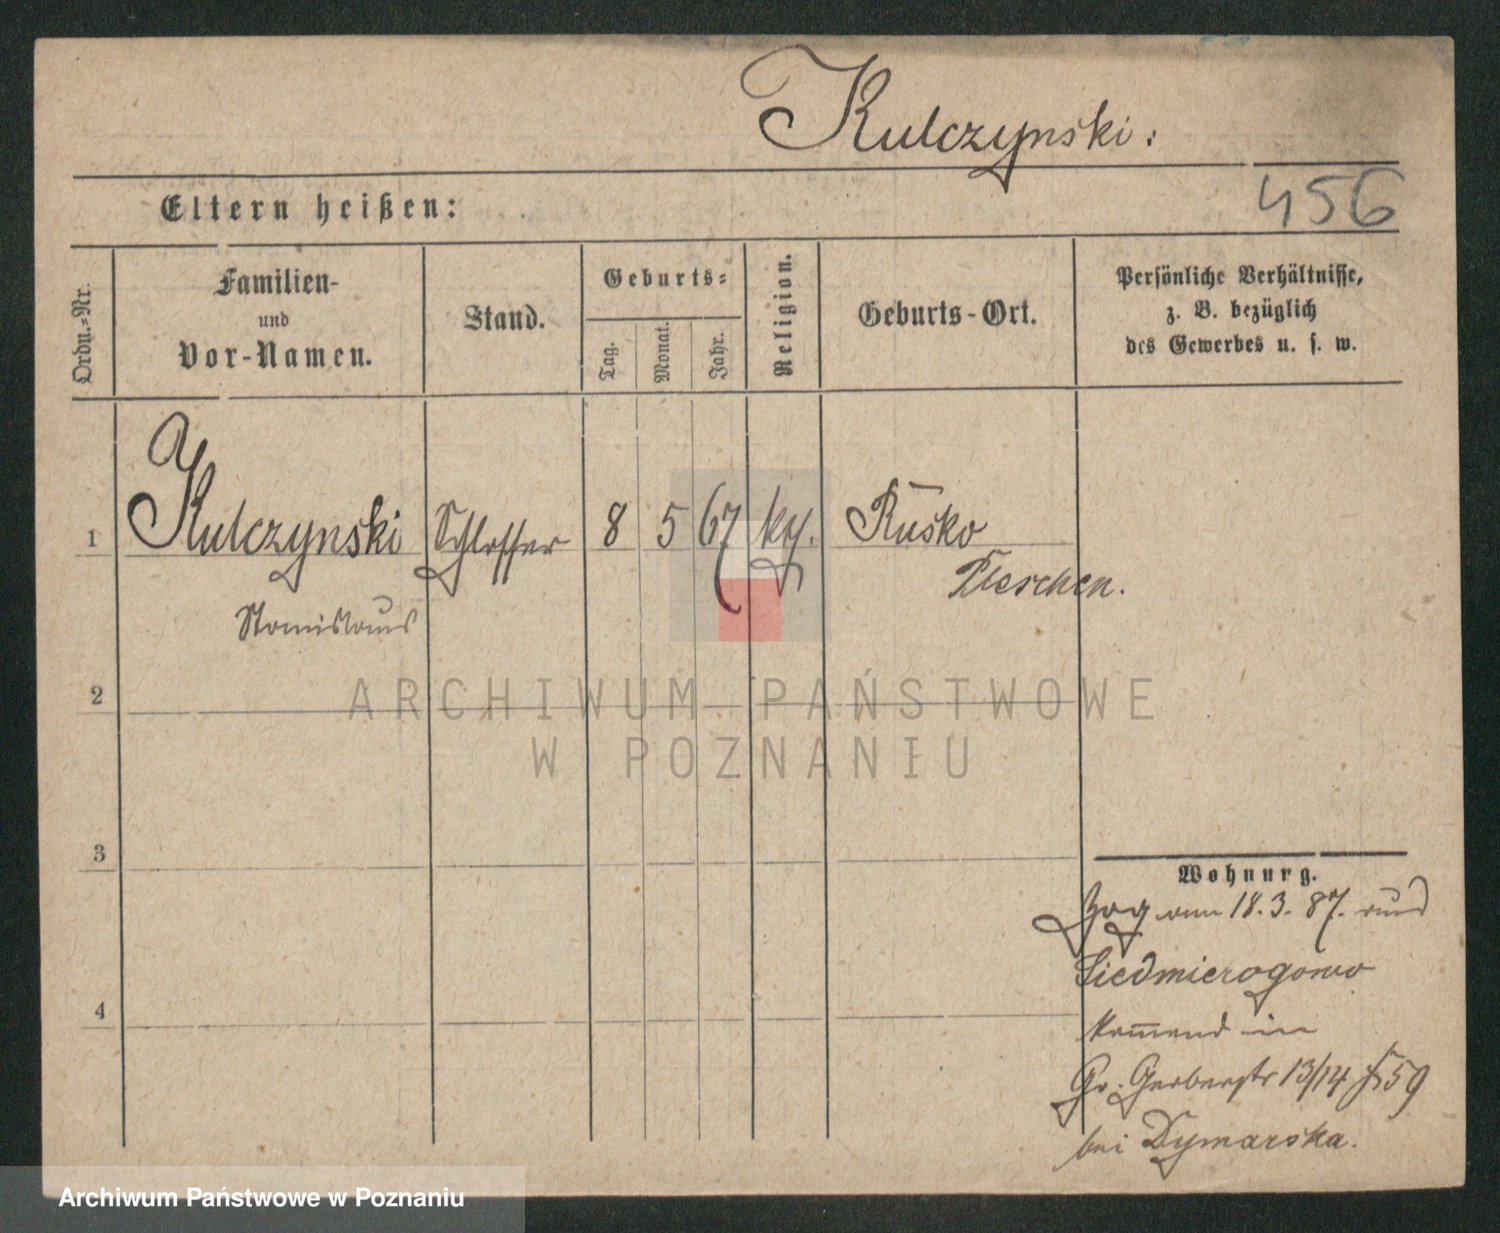 Kulczynski:
456
Eltern heißen:
Ordn.=Nr.
Familien-
und
Vor-Namen.
Stand.
Geburts=
Tag.
Monat.
Jahr.
Religion.
Geburts-Ort.
Persönliche Verhältnisse,
z. B. bezüglich
des Gewerbes u. s. w.
1 Kulczynski Schlosser 8 5 67 kth. Rusko
Pleschen.
Stanislaus
2
ARCHIWUM PAŃSTWOWE
W POZNANIU
3
Wohnung.
Zog am 18.3.87. aus
Siedmierogowo
kommend in
Gr. Gerberstr 13/14 59
bei Dymarska.
4
Archiwum Państwowe w Poznaniu